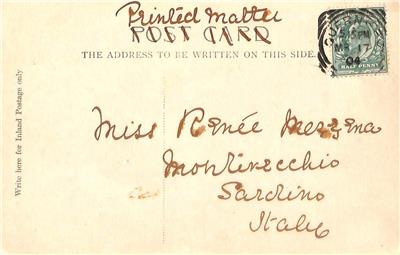 Printed Matter
POST CARD
THE ADDRESS TO BE WRITTEN ON THIS SIDE.
Write here for Inland Postage only
HALF PENNY
04
Miss Renée Mezzena
Montivecchio
Sardino
Italy